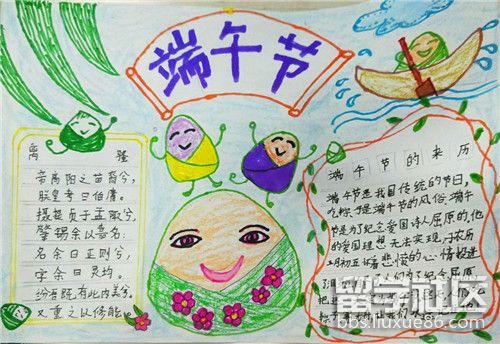 端午节
离 骚
帝高阳之苗裔兮,
朕皇考曰伯庸。
摄提贞于孟陬兮,
肇锡余以嘉名。
名余曰正则兮,
字余曰灵均。
纷吾既有此内美兮,
又重之以修能。
端午节的来历
端午节是我国传统的节日,
吃粽子是端午节的风俗,端午
节是为了纪念爱国诗人屈原的,他
的爱国理想无法实现,于农历
五月初五怀着悲愤的心情投进
人们为了纪念屈原
把
留学社区
bbs.liuxue86.com